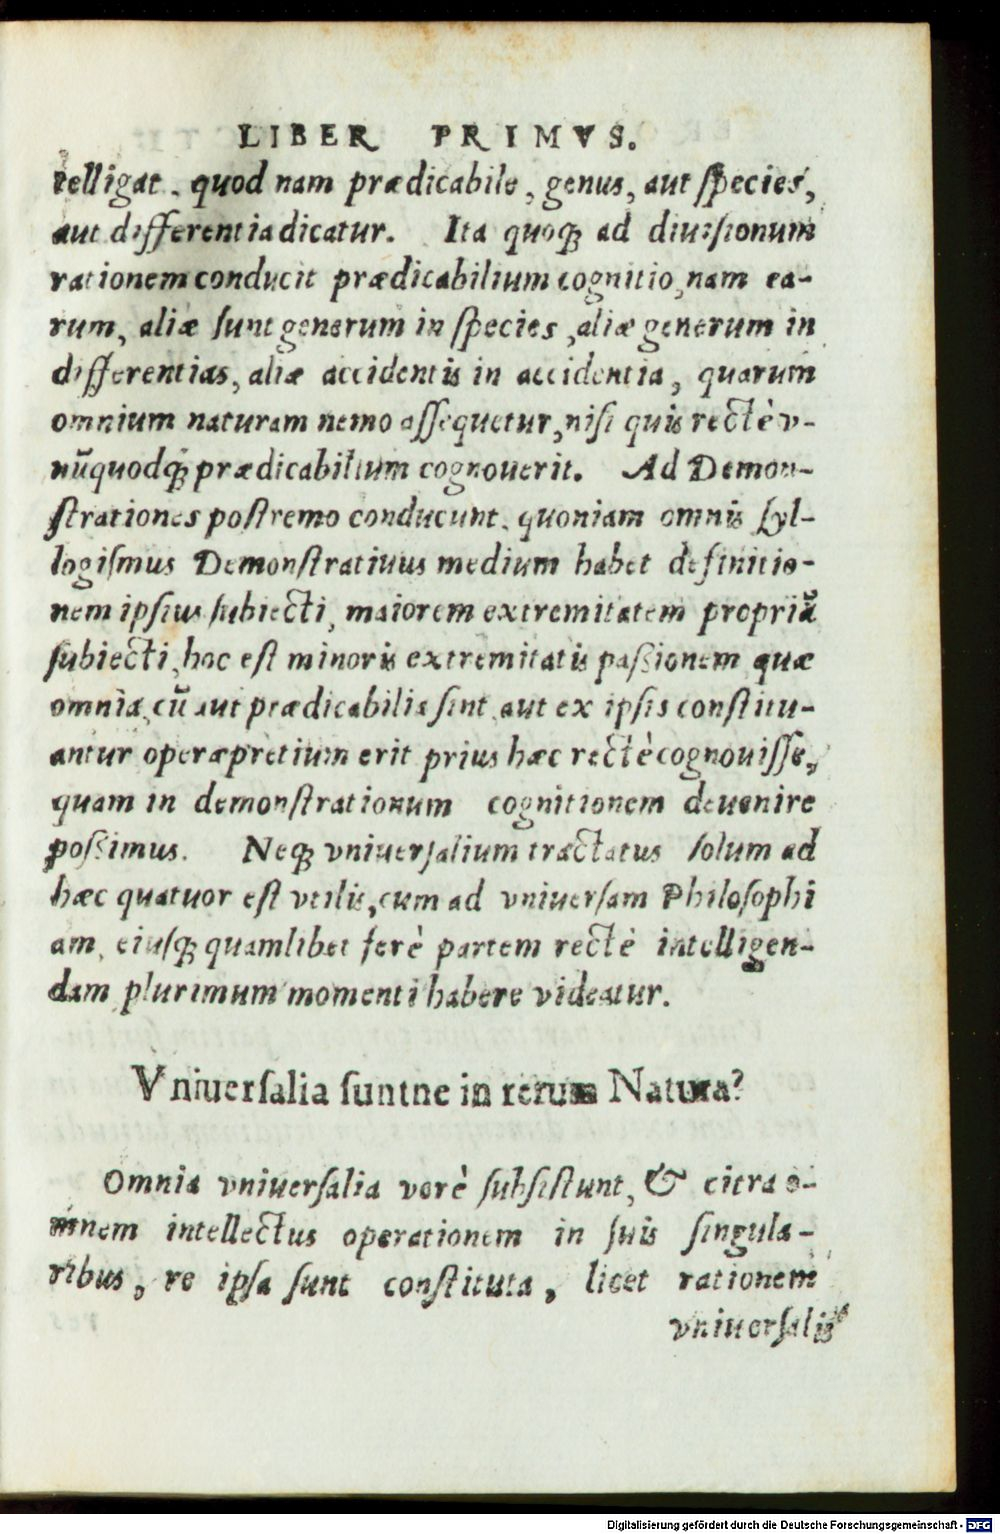 LIBER PRIMVS.
telligat, quod nam prædicabile, genus, aut species,
aut differentia dicatur. Ita quoqꝫ ad diuisionum
rationem conducit prædicabilium cognitio, nam ea-
rum, aliæ sunt generum in species, aliæ generum in
differentias, aliæ accidentis in accidentia, quarum
omnium naturam nemo assequetur, nisi quis rectè v-
nūquodqꝫ prædicabilium cognouerit. Ad Demon-
strationes postremo conducunt, quoniam omnis Syl-
logismus Demonstratiuus medium habet definitio-
nem ipsius subiecti, maiorem extremitatem propriū
subiecti, hoc est minoris extremitatis passionem quæ
omnia, cū aut prædicabilia sint aut ex ipsis constitu-
antur operæpretium erit prius hæc rectè cognouisse,
quam in demonstrationum cognitionem deuenire
possimus. Neqꝫ vniuersalium tractatus solum ad
hæc quatuor est vtilis, cum ad vniuersam Philosophi
am, eiusqꝫ quamlibet ferè partem rectè intelligen-
dam plurimum momenti habere videatur.
Vniuersalia suntne in rerum Natura?
Omnia vniuersalia verè subsistunt, & citra o-
mnem intellectus operationem in suis singula-
ribus, re ipsa sunt constituta, licet rationem
vniuersalis
Digitalisierung gefördert durch die Deutsche Forschungsgemeinschaft - DFG